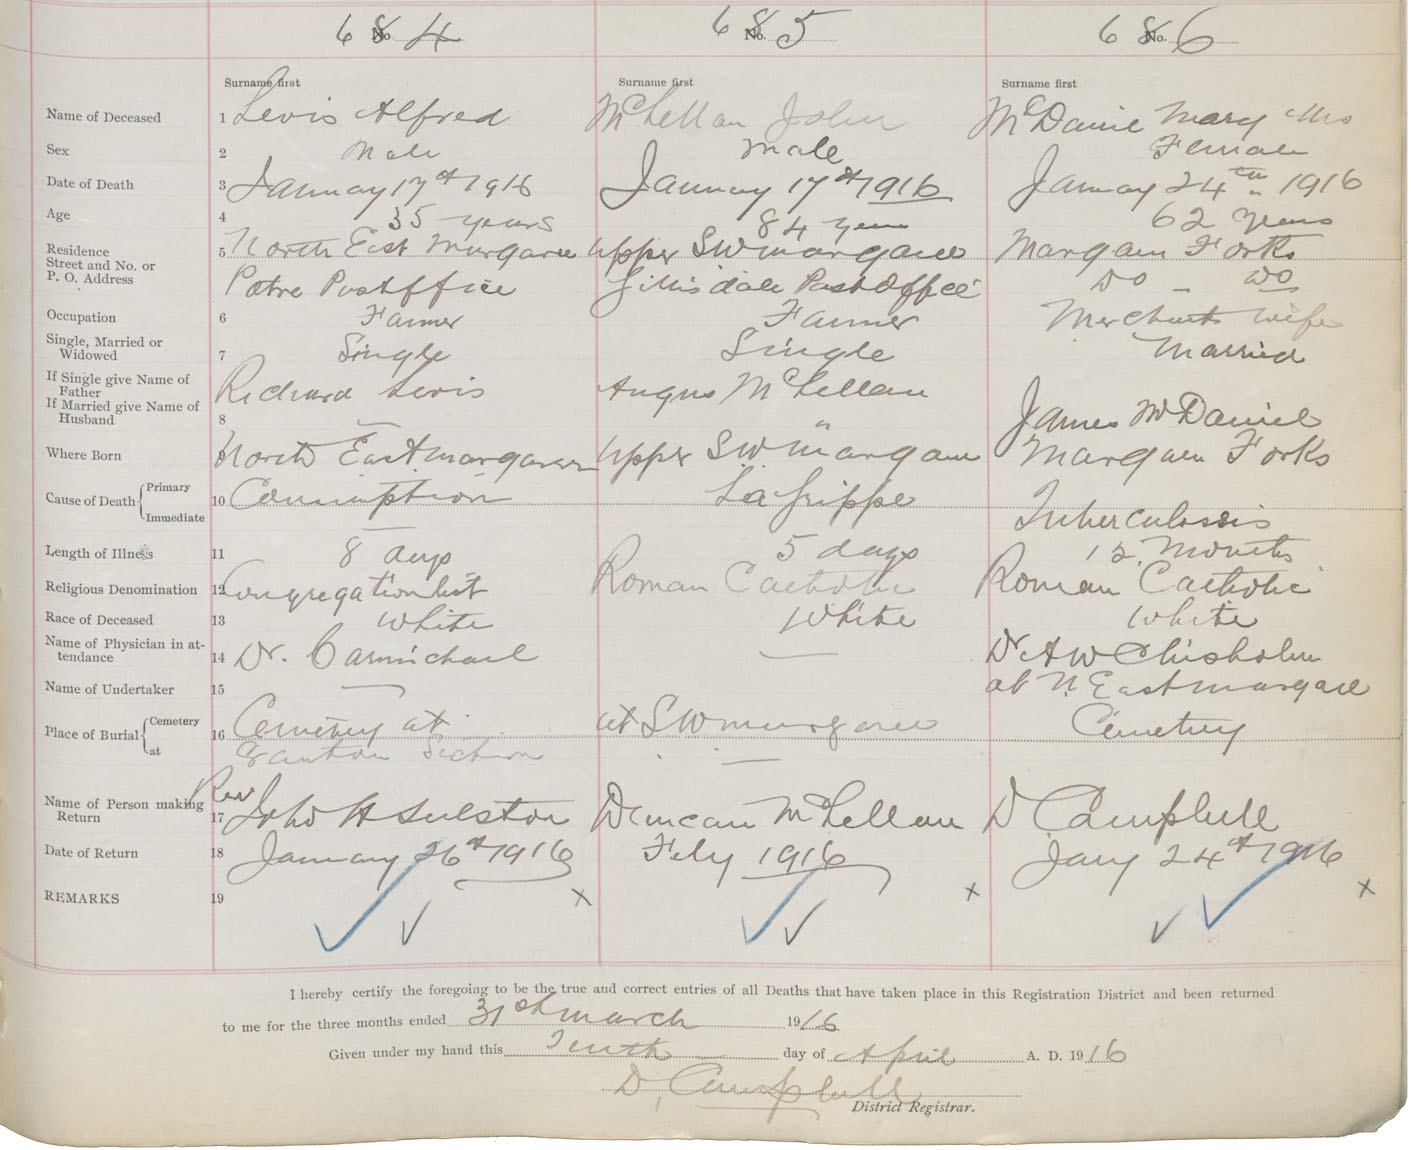 684 685 686
No. No. No.
Surname first Surname first Surname first
Name of Deceased 1 Levis Alfred McLellan John McDaniel Mary Mrs
Sex 2 Male Male Female
Date of Death 3 January 17th 1916 January 17th 1916 January 24th 1916
Age 4 35 years 84 years 62 years
Residence Street and No. or P. O. Address 5 North East Margaree Upper SW Margaree Margaree Forks
Post Office Gillisdale Post Office Do - Do
Occupation 6 Farmer Farmer Merchants wife
Single, Married or Widowed 7 Single Single Married
If Single give Name of Father Richard Levis Angus McLellan
If Married give Name of Husband 8 — " James McDaniel
Where Born 9 North East Margaree Upper SW Margaree Margaree Forks
Cause of Death { Primary Immediate 10 Consumption La Grippe Tuberculosis
Length of Illness 11 8 days 5 days 12 Months
Religious Denomination 12 Congregationlist Roman Catholic Roman Catholic
Race of Deceased 13 White White White
Name of Physician in attendance 14 Dr. Carmichael — Dr AW Chisholm
Name of Undertaker 15 — at N. East Margaree
Place of Burial { Cemetery at 16 Cemetery at at SW Margaree Cemetery
Section —
Name of Person making Return 17 Rev John H McLellan Duncan McLellan D Campbell
Date of Return 18 January 26th 1916 Feby 1916 Jany 24th 1916
REMARKS 19 x x x
I hereby certify the foregoing to be the true and correct entries of all Deaths that have taken place in this Registration District and been returned
to me for the three months ended 31st March 1916
Given under my hand this Tenth day of April A. D. 1916
D, Campbell
District Registrar.